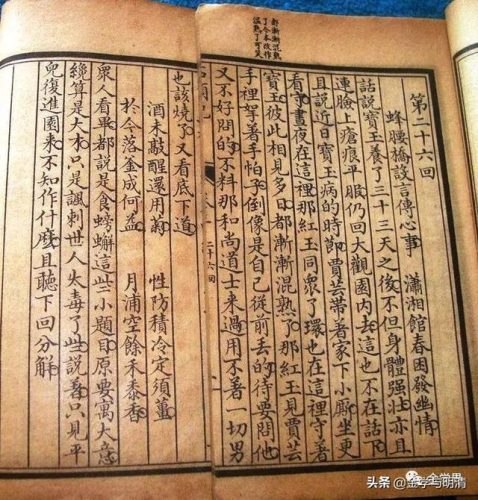 都漸漸混熟
了今本改作
混熟了可笑
第二十六回
蜂腰橋設言傳心事　瀟湘館春困發幽情
話說寶玉養了三十三天之後不但身體強壯亦且
連臉上瘡痕平服仍回大觀園內去這也不在話下
且說近日寶玉病的時節賈芸帶着家下小廝坐更
看守晝夜在這裡那紅玉同衆了環也在這裡守着
寶玉彼此相見多日都漸漸混熟了那紅玉見賈芸
手裡拏著手怕子倒像是自己從前丟的待要問他
又不好問的不料那和尚道士來過用不着一切男
二十六回
也該燒了又看底下道
酒未敲醒還用菊　性防積冷定須薑
於今落釜成何益　月浦空餘禾黍香
衆人看畢都說是食螃蟹這些小題目原要寓大意
纔算是大才只是諷刺世人太毒了些說着只見平
兒復進園來不知作什麼且聽下回分解
金學界
头条 @金学与明清